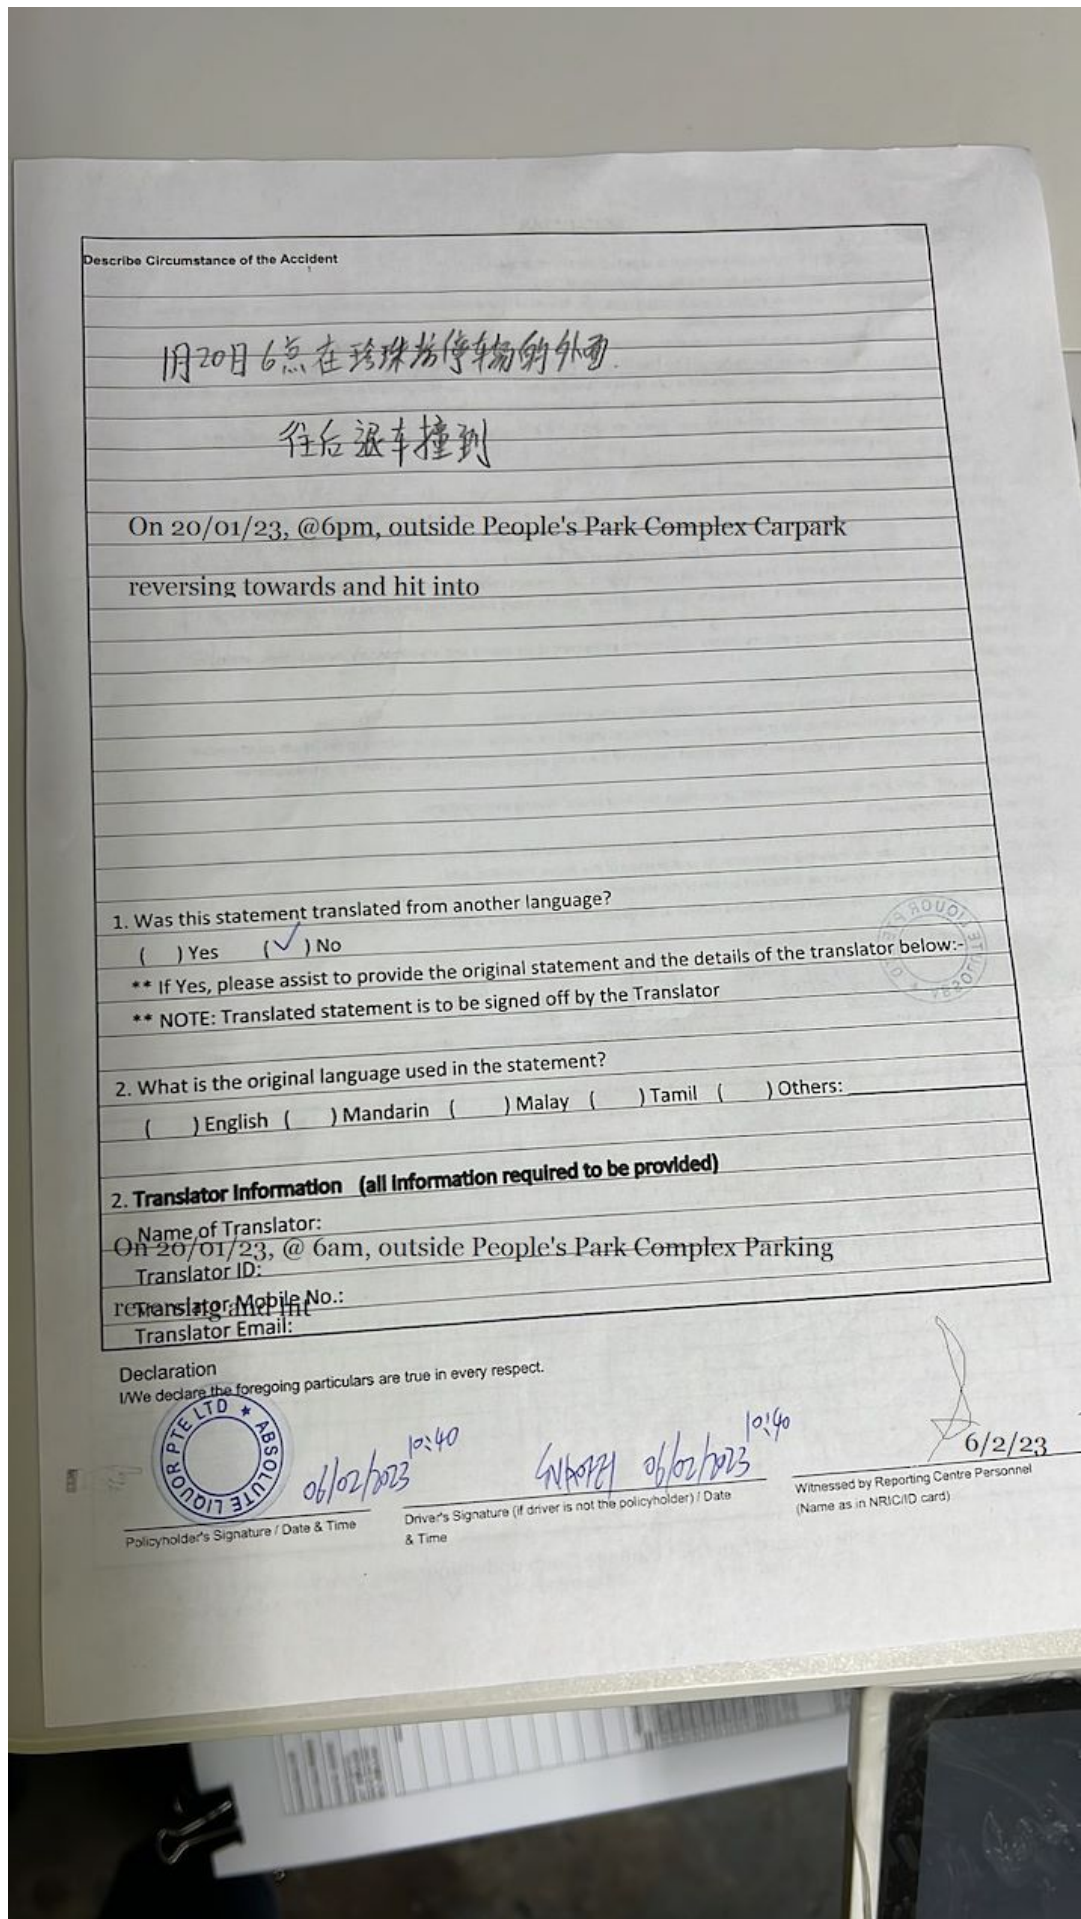 Describe Circumstance of the Accident
1月20日6点在珍珠坊停车场的外面.
往后退车撞到
On 20/01/23, @6pm, outside People's Park Complex Carpark
reversing towards and hit into
1. Was this statement translated from another language?
( ) Yes (✓) No
** If Yes, please assist to provide the original statement and the details of the translator below:-
** NOTE: Translated statement is to be signed off by the Translator
2. What is the original language used in the statement?
( ) English ( ) Mandarin ( ) Malay ( ) Tamil ( ) Others:
2. Translator Information (all information required to be provided)
Name of Translator:
On 20/01/23, @ 6am, outside People's Park Complex Parking
Translator ID:
reversing and hit
Translator Mobile No.:
Translator Email:
Declaration
I/We declare the foregoing particulars are true in every respect.
ABSOLUTE LIQUOR PTE LTD ★
06/02/2023 10:40
06/02/2023 10:40
6/2/23
Policyholder's Signature / Date & Time
Driver's Signature (if driver is not the policyholder) / Date
& Time
Witnessed by Reporting Centre Personnel
(Name as in NRIC/ID card)